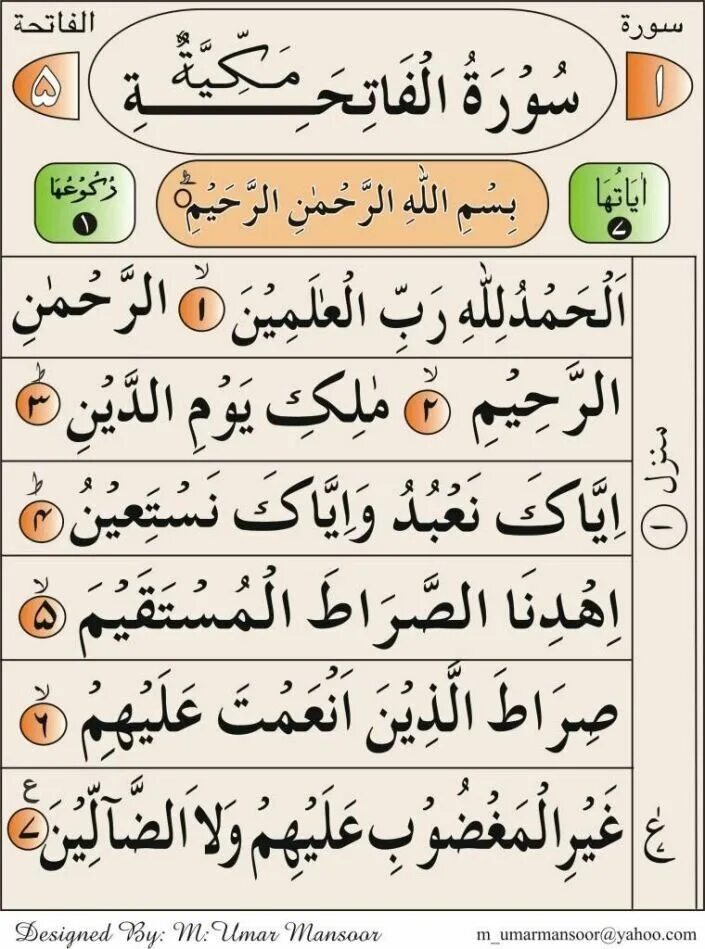 سورة الفاتحة
١ سُوْرَةُ الْفَاتِحَةِ مَكِّيَّةٌ ۵
اٰيَاتُهَا ٧ بِسْمِ اللهِ الرَّحْمٰنِ الرَّحَيْمِ ط رُكُوْعُهَا ١
اَلْحَمْدُلِلّٰهِ رَبِّ الْعٰلَمِيْنَ ١ لا الرَّحْمٰنِ
الرَّحِيْمِ ٢ لا مٰلِكِ يَوْمِ الدَّيْنِ ٣ ط
اِيَّاكَ نَعْبُدُ وَاِيَّاكَ نَسْتَعِيْنُ ۴ ط
اِهْدِنَا الصَّرَاطَ الْمُسْتَقَيْمَ ۵ لا
صِرَاطَ الَّذِيْنَ اَنْعَمْتَ عَلَيْهِمْ ۶ لا
غَيْرِالْمَغْضُوْبِ عَلَيْهِمْ وَلاَ الضَّآلِّيْنَ ٧ ع
منزل ١
ع ٧
Designed By: M:Umar Mansoor m_umarmansoor@yahoo.com